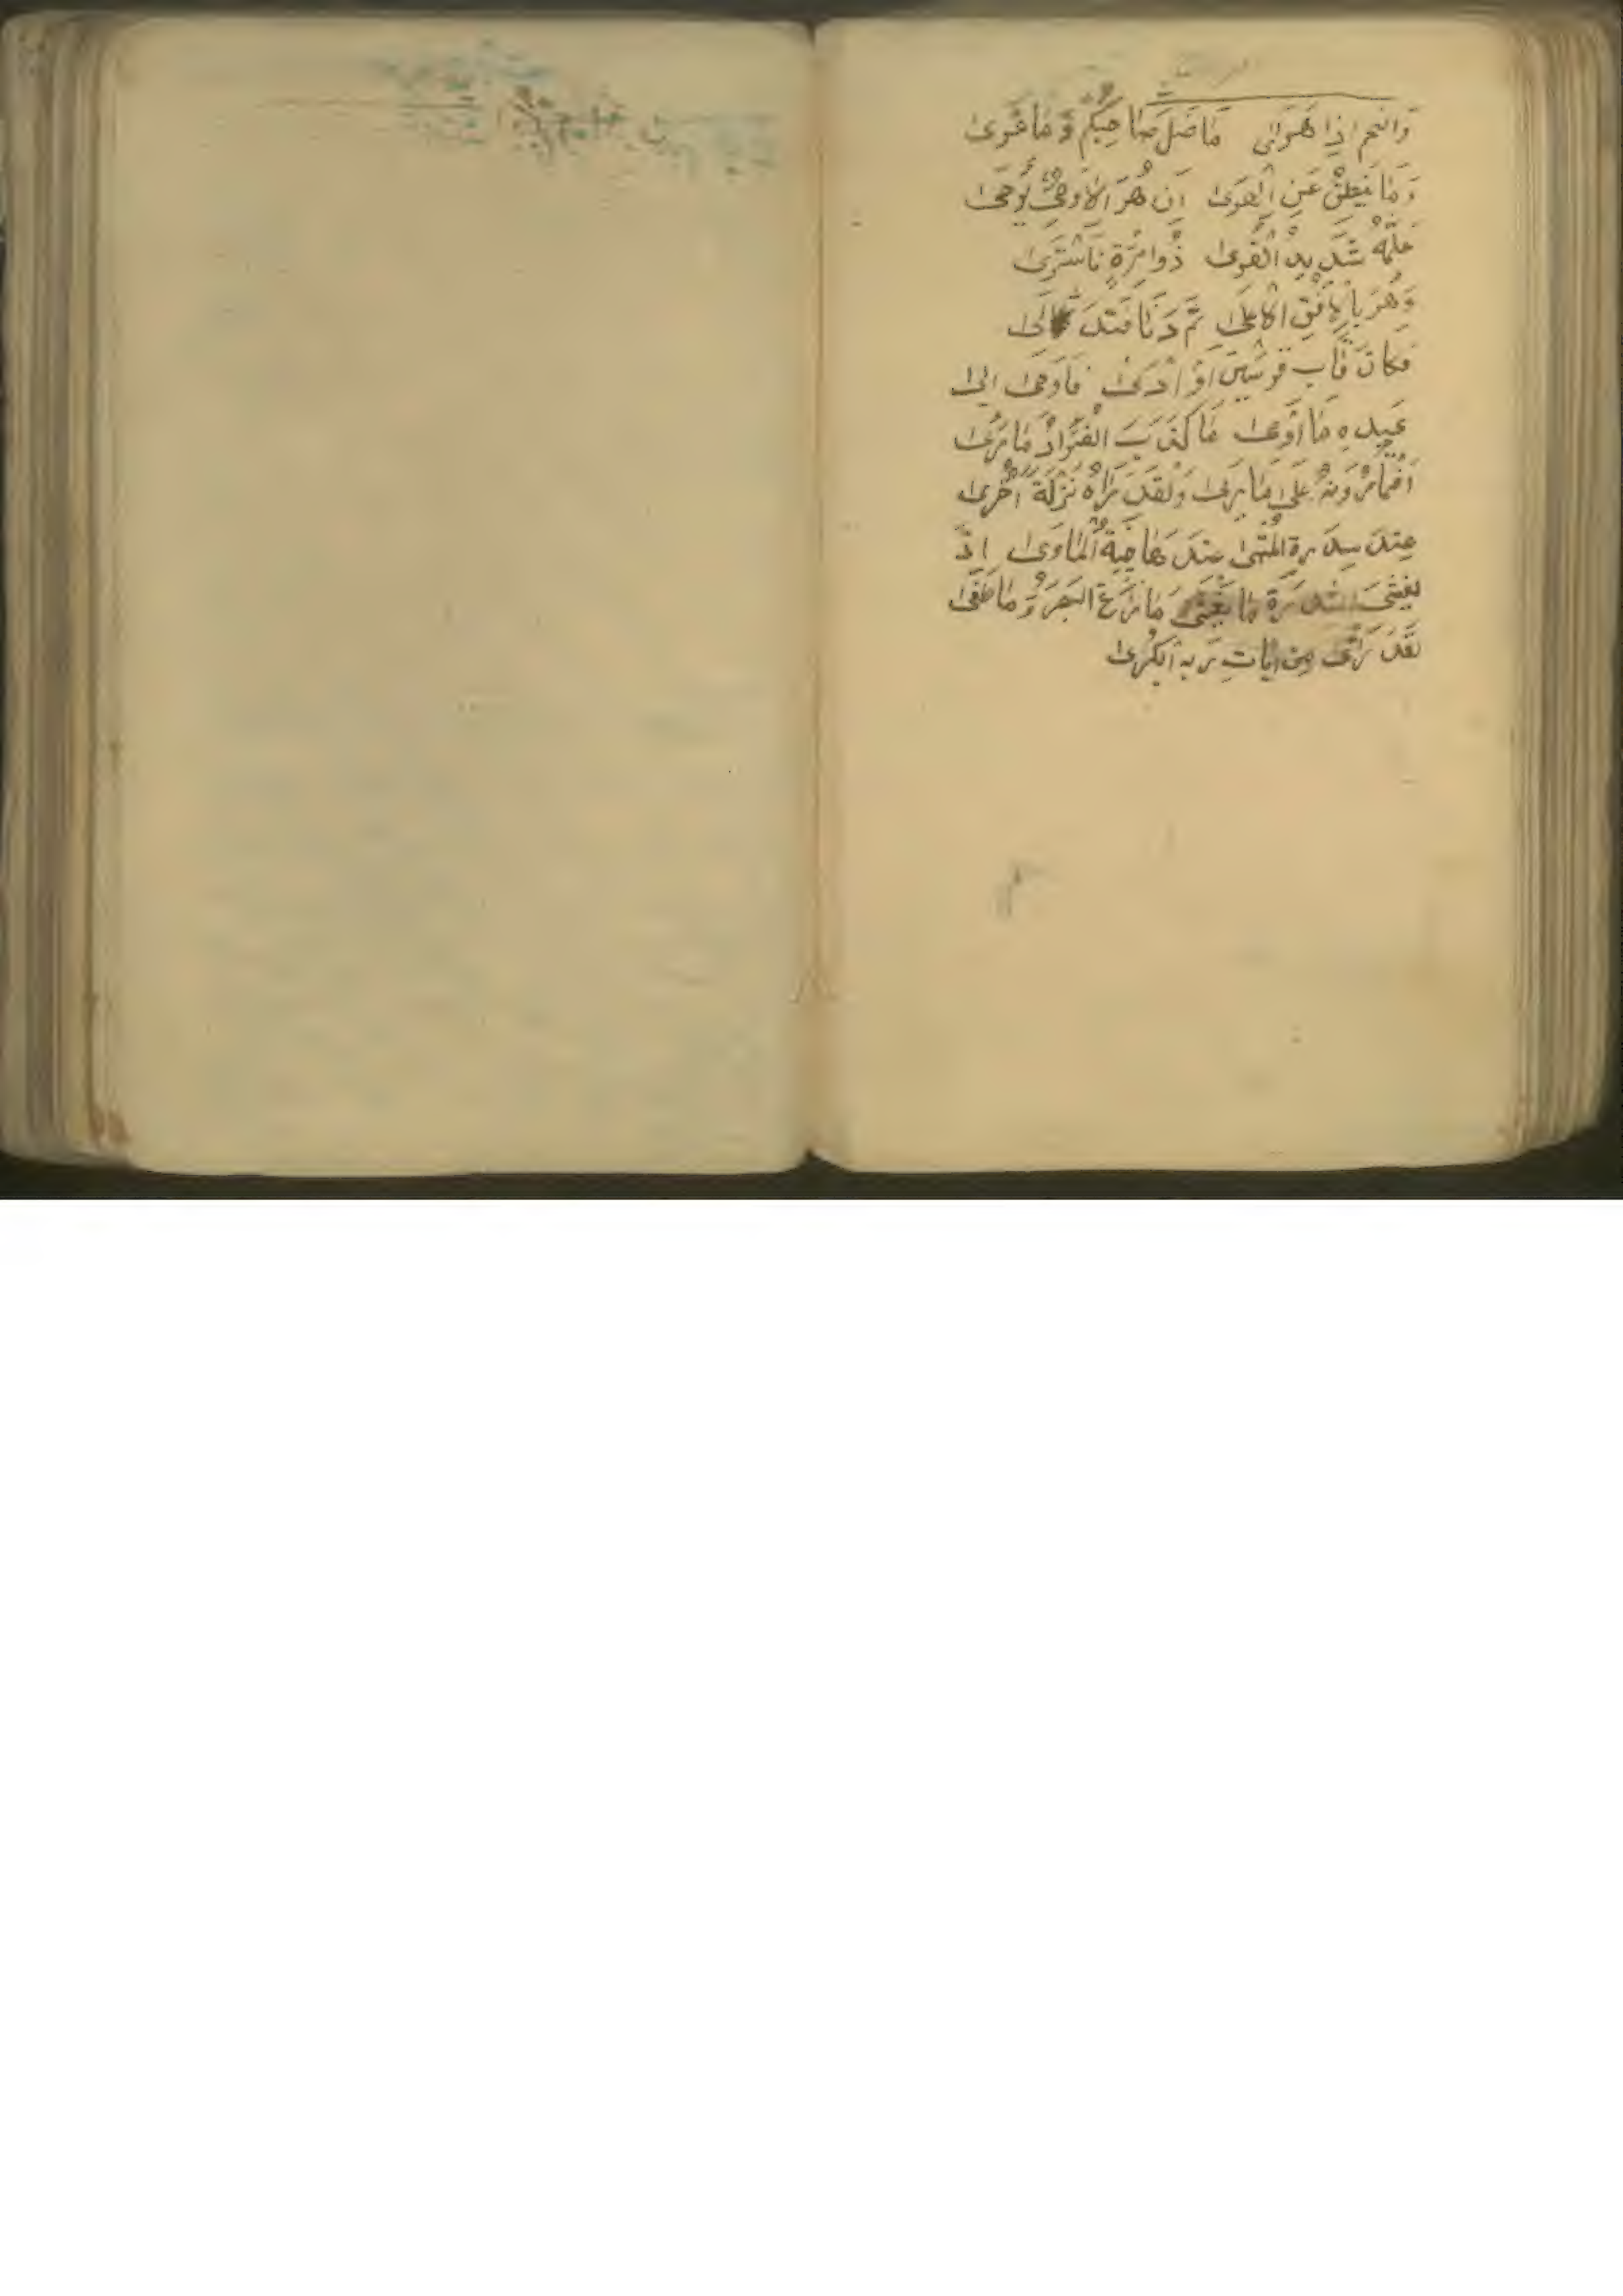 وَالنجم اذِا هَوَىٰ مَا ضَلَ صَاحِبُكُم وَ مَا غَوىٰ
وَمَا يَنطِقْ عَنِ الهَوَىٰ اِن هُوَ الاَّ وَحْىٌ يُوحَىٰ
عَلَّمهُ شَدِيدُ القُوىٰ ذُوا مِرَةٍ فَاسْتَوىٰ
وَهُوَ بِالاُفُقِ الاَعلىٰ ثُمَ دَنَا فَتَدَ لىٰ
فكانَ قَابَ قَوسَينِ اَوْ اَدنىٰ فَاَوحىٰ الىٰ
عَبدِهِ مَا اَوحىٰ مَا كَذَبَ الفُؤادُ مَا رَاىٰ
اَفَتُمارُونَهُ عَلىٰ مَا يَرىٰ وَلَقَد رَاهُ نَزلَةً اُخْرىٰ
عِندَ سِدرةِ المُنتَهىٰ عِندَهَا جَنَةُ المَاوىٰ اِذ
يَغشىَ السِّدرَةَ مَا يَغْشىٰ مَا زَاغَ البَصَرُ وَ مَا طَغىٰ
لقَد رَاىٰ مِن اٰيَاتِ رَبِه الكُبرىٰ